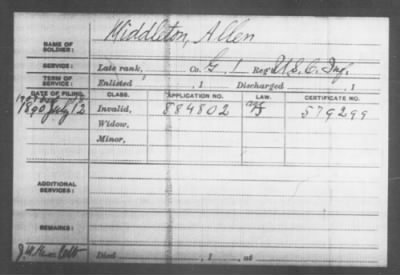 Middleton, Allen
NAME OF SOLDIER:
SERVICE: Late rank, Co. G, 1 Reg't U.S.C. Inf.
TERM OF SERVICE: Enlisted , 1 Discharged , 1
DATE OF FILING. CLASS. APPLICATION NO. LAW. CERTIFICATE NO.
1890 July 12 Invalid, 884802 579299
Widow,
Minor,
ADDITIONAL SERVICES:
REMARKS:
Died , 1 , at